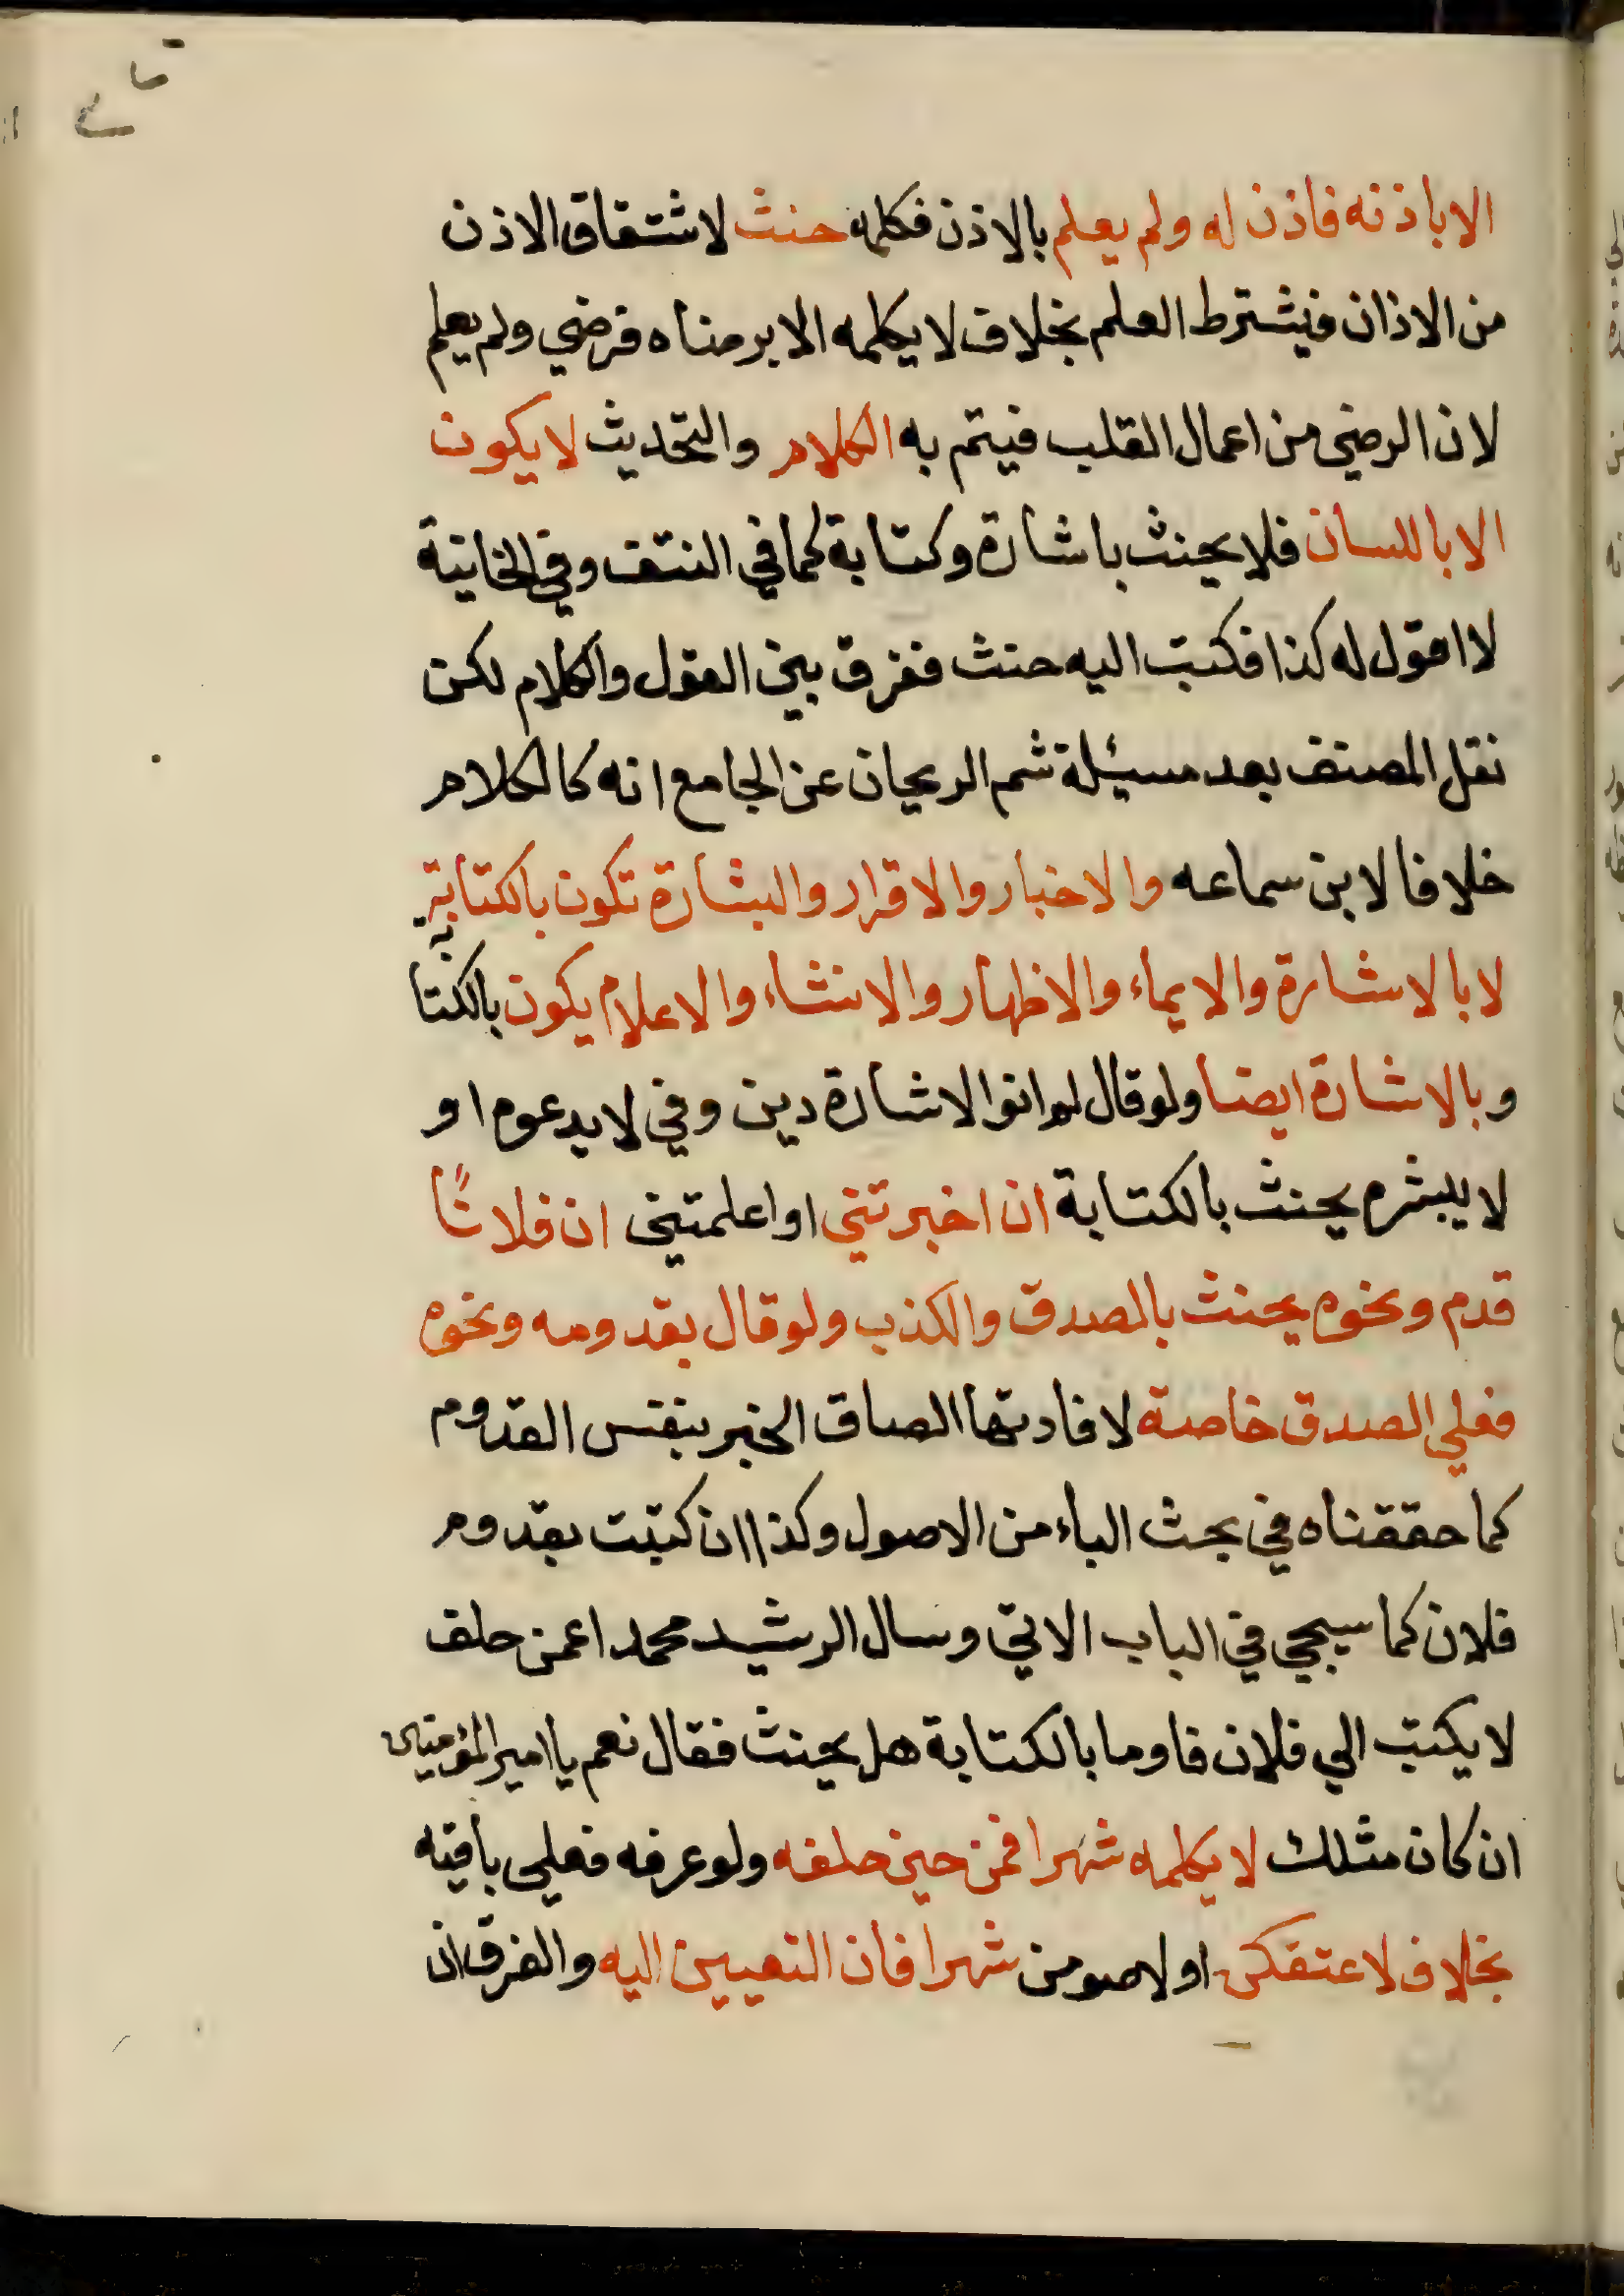 الا باذنه فاذن له ولم يعلم بالاذن فكلمه حنث لاشتقاق الاذن
من الاذان فيشترط العلم بخلاف لا يكلمه الا برضاه فرضي ولم يعلم
لان الرضى من اعمال القلب فيتم به الكلام والتحديث لا يكون
الا باللسان فلا يحنث باشارة وكتابة كما في النتف وفي الخانية
لا اقول له كذا فكتب اليه حنث ففرق بين القول والكلام لكن
نقل المصنف بعد مسئلة شم الريحان عن الجامع انه كالكلام
خلافا لابن سماعه والاخبار والاقرار والبشارة تكون بالكتابة
لا بالاشارة والايماء والاظهار والانشاء والاعلام يكون بالكتابة
وبالاشارة ايضا ولو قال لم انو الاشارة دين وفي لا يدعوه او
لا يبشره يحنث بالكتابة ان اخبرتني او اعلمتني ان فلانًا
قدم ونحوه يحنث بالصدق والكذب ولو قال بقدومه ونحوه
فعلى الصدق خاصة لافادتها الصاق الخبر بنفس القدوم
كما حققناه في بحث الباء من الاصول وكذا ان كتبت بقدوم
فلان كما سيجي في الباب الاتي وسال الرشيد محمدا عمن حلف
لا يكتب الي فلان فاوما بالكتابة هل يحنث فقال نعم يا امير المؤمنين
ان كان مثلك لا يكلمه شهرا فمن حين حلفه ولو عرفه فعلى باقيه
بخلاف لاعتقكن او لاصومن شهرا فان التعيين اليه والفرق ان